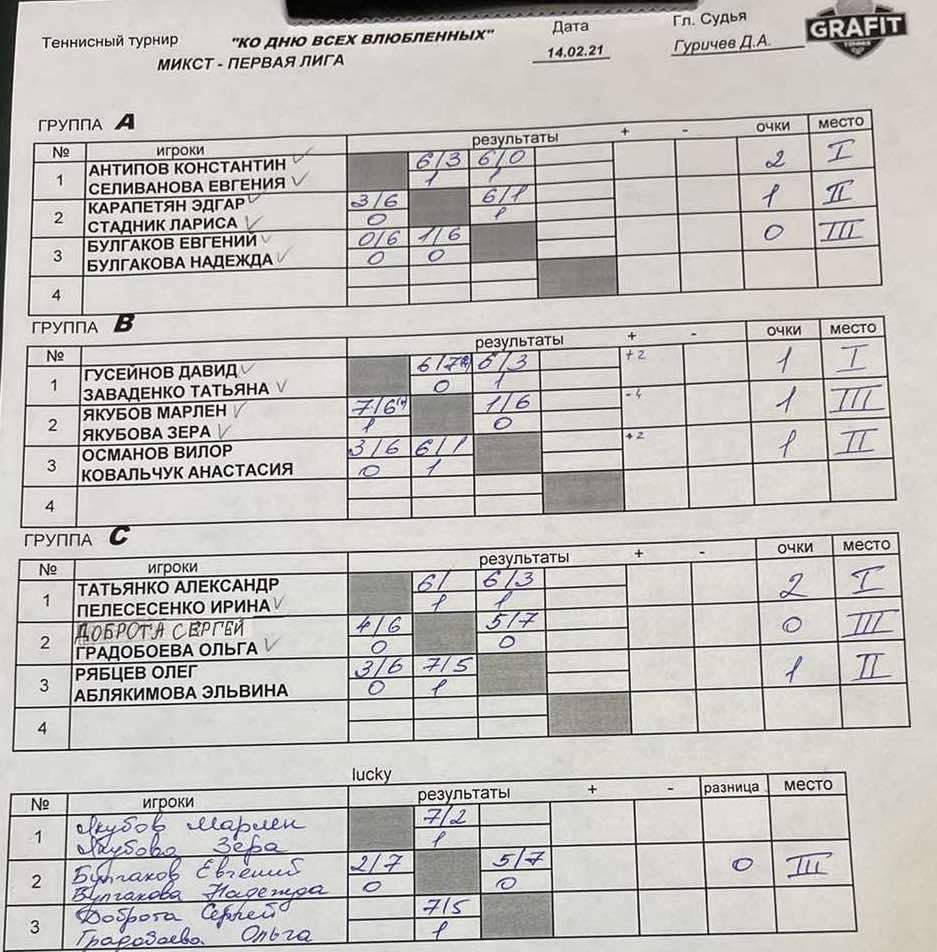 Теннисный турнир "КО ДНЮ ВСЕХ ВЛЮБЛЕННЫХ" Дата Гл. Судья GRAFIT
МИКСТ - ПЕРВАЯ ЛИГА 14.02.21 Гуричев Д.А. TENNIS
ГРУППА A
№ игроки результаты + - очки место
1 АНТИПОВ КОНСТАНТИН 6/3 6/0 2 I
СЕЛИВАНОВА ЕВГЕНИЯ 1 1
2 КАРАПЕТЯН ЭДГАР 3/6 6/1 1 II
СТАДНИК ЛАРИСА 0 1
3 БУЛГАКОВ ЕВГЕНИЙ 0/6 1/6 0 III
БУЛГАКОВА НАДЕЖДА 0 0
4
ГРУППА B
№ игроки результаты + - очки место
1 ГУСЕЙНОВ ДАВИД 6/7 6/3 +2 1 I
ЗАВАДЕНКО ТАТЬЯНА 0 1
2 ЯКУБОВ МАРЛЕН 7/6 1/6 -4 1 III
ЯКУБОВА ЗЕРА 1 0
3 ОСМАНОВ ВИЛОР 3/6 6/1 +2 1 II
КОВАЛЬЧУК АНАСТАСИЯ 0 1
4
ГРУППА C
№ игроки результаты + - очки место
1 ТАТЬЯНКО АЛЕКСАНДР 6/ 6/3 2 I
ПЕЛЕСЕСЕНКО ИРИНА 1 1
2 ДОБРОТА СЕРГЕЙ 4/6 5/7 0 III
ГРАДОБОЕВА ОЛЬГА 0 0
3 РЯБЦЕВ ОЛЕГ 3/6 7/5 1 II
АБЛЯКИМОВА ЭЛЬВИНА 0 1
4
lucky
№ игроки результаты + - разница место
1 Якубов Марлен 7/2
Якубова Зера 1
2 Булгаков Евгений 2/7 5/7 0 III
Булгакова Надежда 0 0
3 Доброта Сергей 7/5
Градобоева Ольга 1